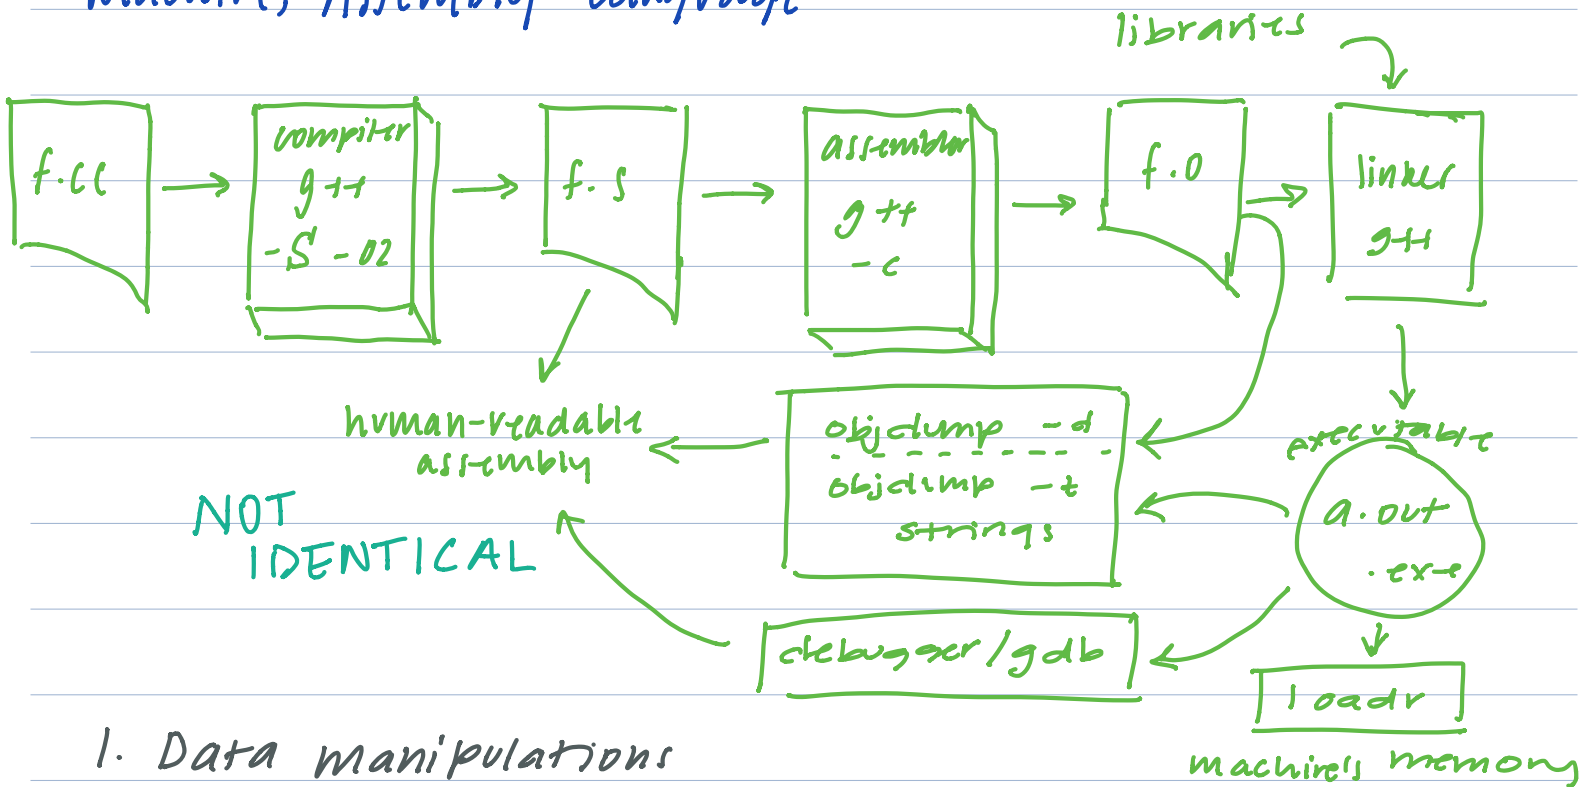 Machine, Assembly Language
libraries
f.cc
compiler
g++
-S -O2
f.s
assembler
g++
-c
f.o
linker
g++
human-readable
assembly
NOT
IDENTICAL
objdump -d
objdump -t
strings
executable
a.out
.exe
debugger/gdb
loadr
machine's memory
1. Data manipulations